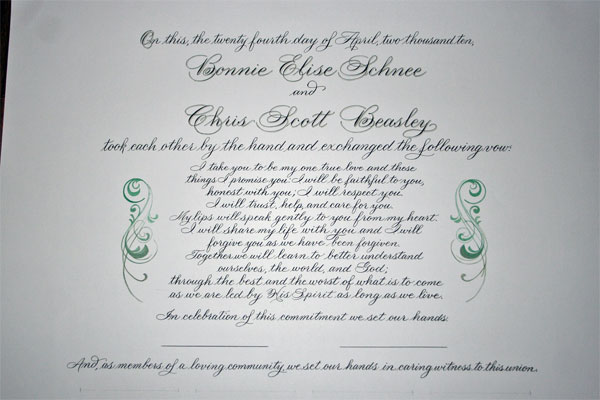 On this, the twenty fourth day of April, two thousand ten,
Bonnie Elise Schnee
and
Chris Scott Beasley
took each other by the hand and exchanged the following vow:
I take you to be my one true love and these
things I promise you: I will be faithful to you,
honest with you; I will respect you.
I will trust, help, and care for you.
My lips will speak gently to you from my heart.
I will share my life with you and I will
forgive you as we have been forgiven.
Together we will learn to better understand
ourselves, the world, and God;
through the best and the worst of what is to come
as we are led by His Spirit as long as we live.
In celebration of this commitment we set our hands.
And, as members of a loving community, we set our hands in caring witness to this union.